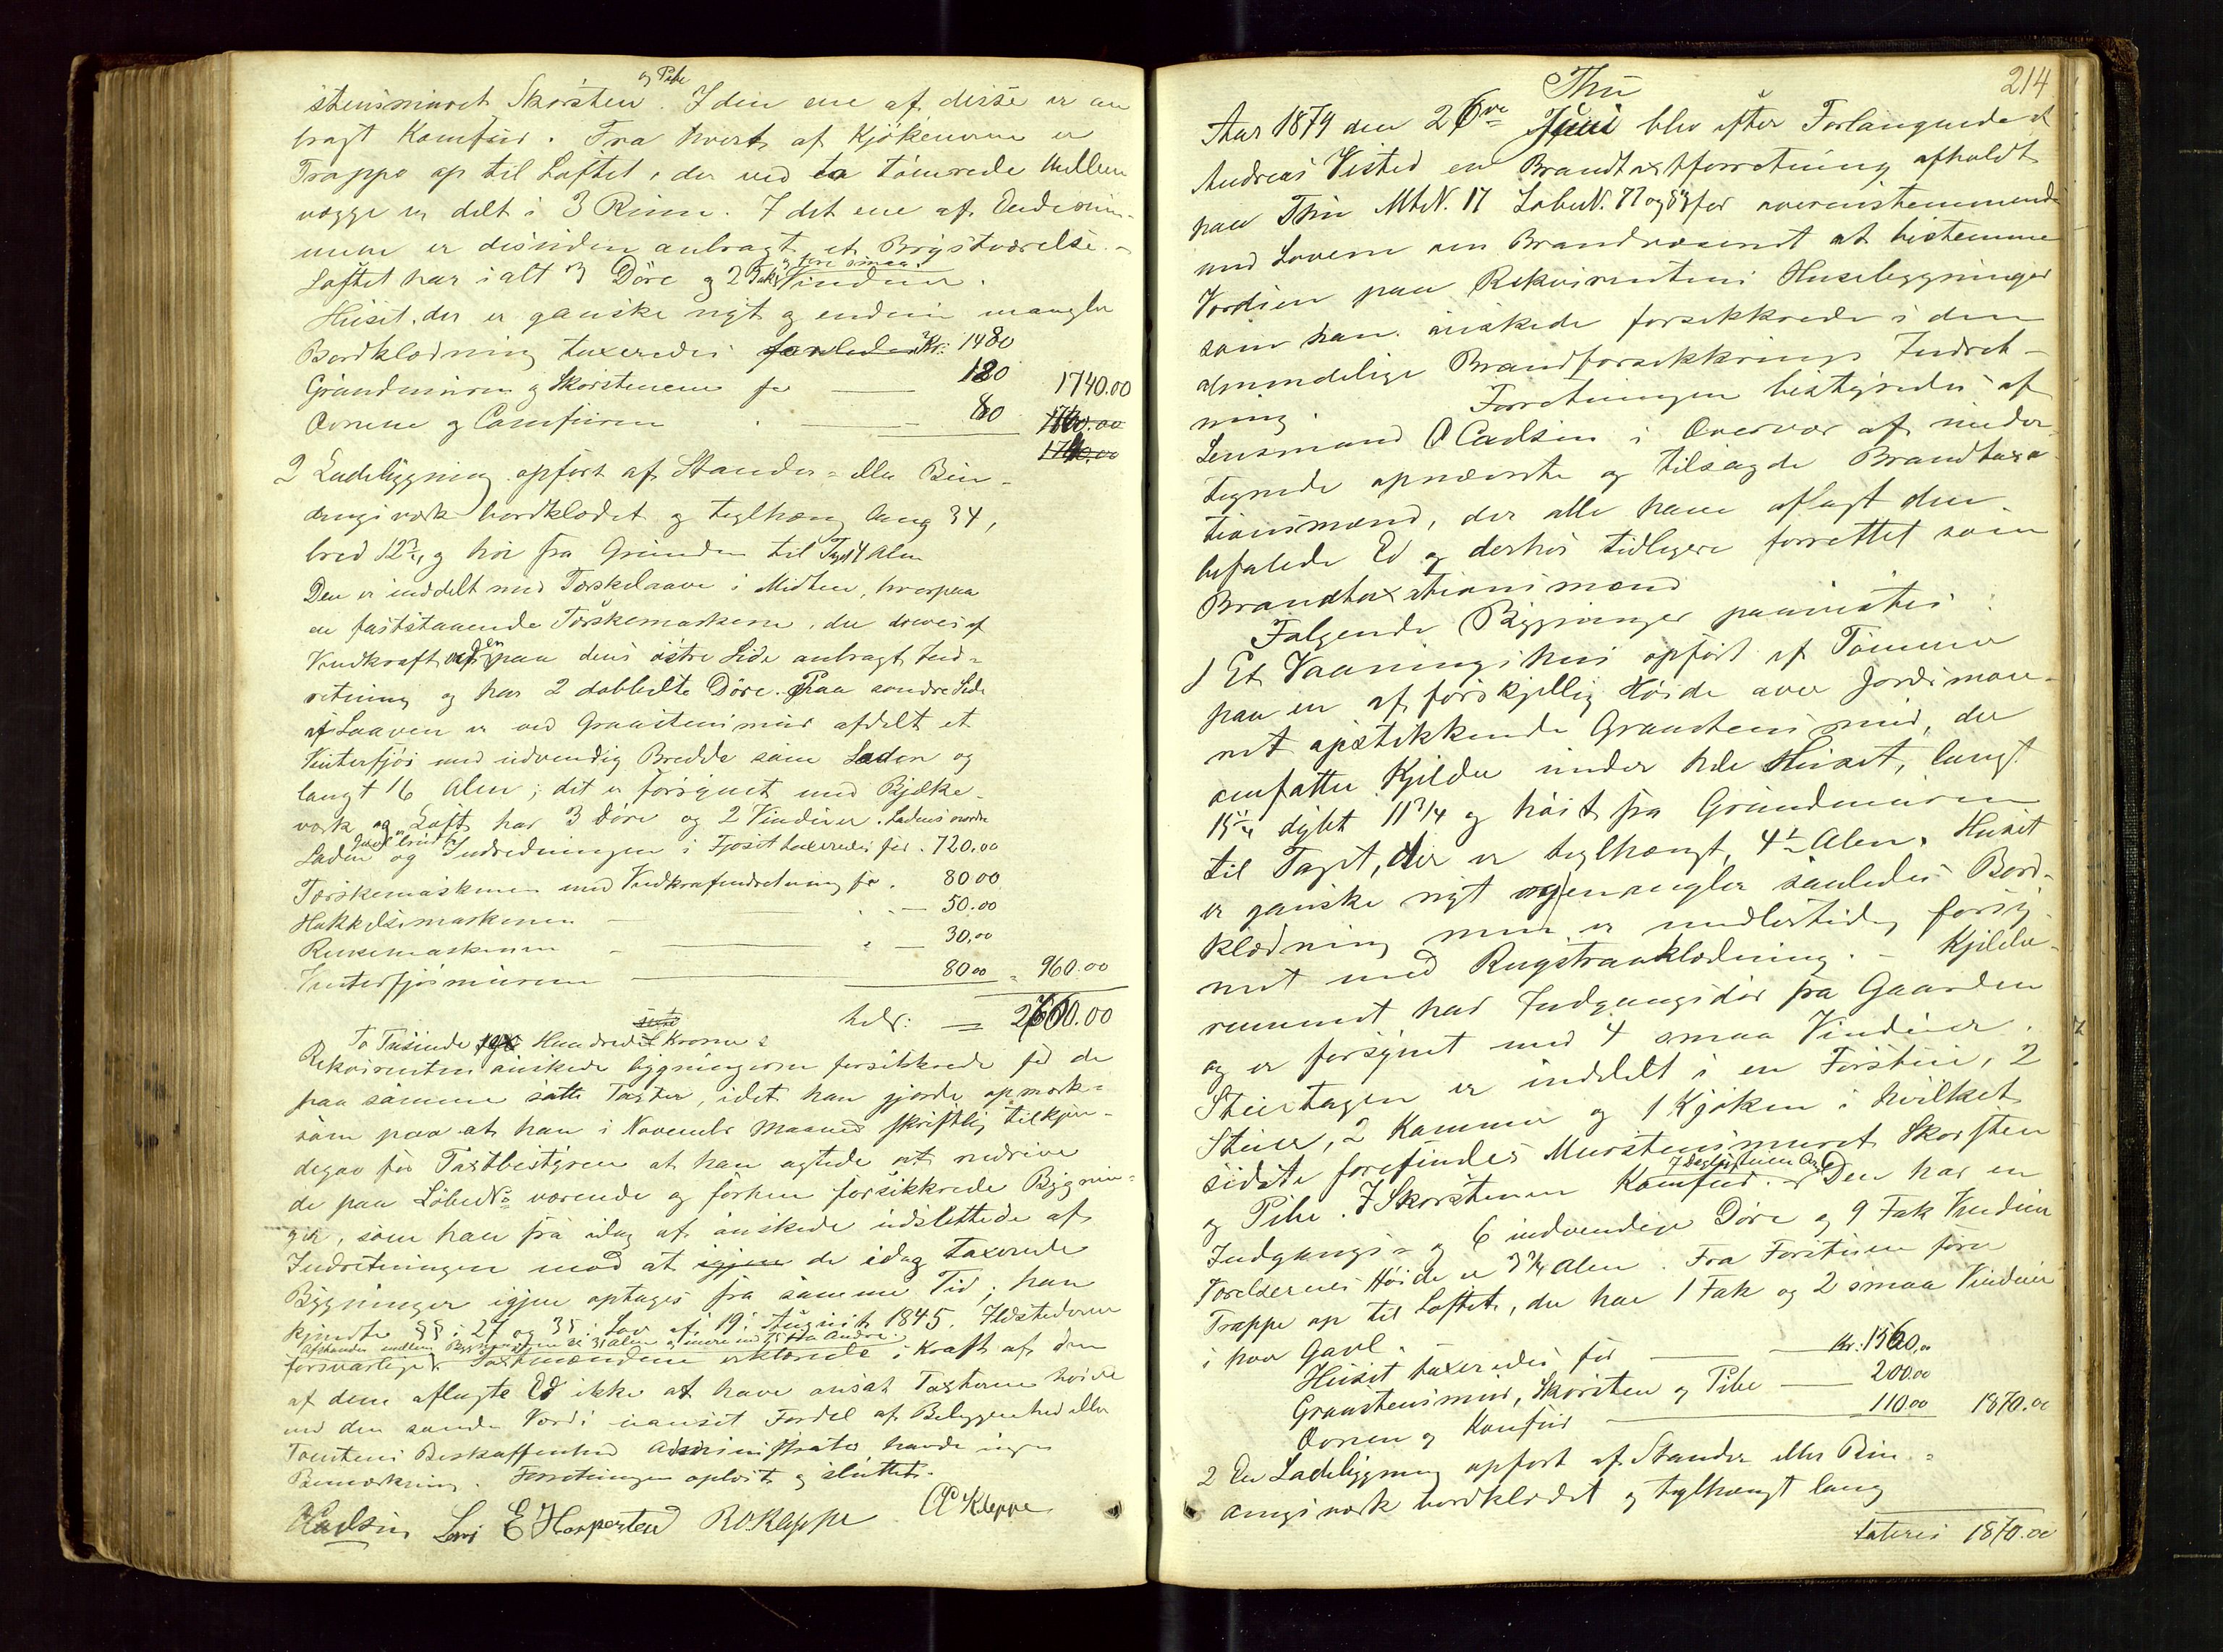 og Pibe
stensmuret Skorsten. I den ene af disse er an
bragt Komfur. Fra hvert af Kjøkenerne er
Trappe op til Loftet, der ved to tømrede Mellem
vægge er delt i 3 Rum. I det ene af Enderum-
mene er desuden anbragt et Brystværelse. -
og fire smaa
Loftet har i alt 3 Döre og 2 Fak Vinduer.
Huset, der er ganske nyt og endnu mangler
Bordklædning taxeredes for Kr: 1480
Grundmuren og Skorstenene for 180 1740.00
Ovnene og Comfuren 80
1740.00
2 Ladebygning opført af Stander- eller Bin-
dingsværk bordklædet og teglhængt lang 34,
bred 12¾, og høi fra Grunden til Taget 4 Alen
Den er inddelt med Tærskelaave i Midten, hvorpaa
en faststaaende Tærskemaskine, der drives af
Vindkraft ved en paa dens østre Side anbragt Ind-
retning og har 2 dobbelte Döre. Paa søndre Side
af Laaven er ved Graastensmur afdelt et
Vinterfjøs med udvendig Bredde som Laden og
langt 16 Alen; det er forsynet med Bjælke-
værk og Loft har 3 Döre og 2 Vinduer. Ladens nordre
Laden og Indredningen i Fjøset taxeredes for 720.00
Tærskemaskinen med Vindkraftindretning for 80 00
Hakkelsemaskinen 50.00
Rensemaskinen 30,00
Vinterfjøsmuren 80 00 960.00
tils: 2700.00
To Tusinde Hundrede Kroner
Rekvirenten ønskede bygningerne forsikkrede for de
paa samme satte Taxter, idet han gjorde opmærk-
som paa at han i November Maaned skriftlig tilkjen-
degav for Taxtbestyren at han agtede at nedrive
de paa LøbeNo værende og førhen forsikkrede Bygnin-
ger, som han fra idag af ønskede udslettede af
Indretningen mod at igjen de idag taxerede
Bygninger igjen optages fra samme Tid; han
kjendte §§ 27 og 35 i Lov af 19 August 1845. Ildstederne
Afstanden mellem Bygningerne er 31 Alen og mere end 75 fra Andre.
forsvarlige. Taxtmændene erklærede i Kraft af den
af dem aflagte Ed ikke at have ansat Taxterne høiere
end den sande Værdi uanset Fordel af Beliggenhed eller
Tomtens Beskaffenhed Administrator havde ingen
Bemærkning. Forretningen oplæst og sluttet.
OCadsin Lars E Hosporsted R.O.Kleppe O P Kleppe
214
Thu
Aar 1879 den 26de Juni blev efter Forlangende af
Andreas Visted en Brandtaxtforretning afholdt
paa Thu MtN. 17 LøbeN. 77 og for overenstemmende
med Lovene om Brandvæsenet at bestemme
Værdien paa Rekvirentens Husebygninger
som han ønskede forsikkrede i den
almindelige Brandforsikkrings Indret-
ning. Forretningen bestyredes af
Lensmand O Cadsin i Overvær af under
tegnede opnævnte og tilsagde Brandtaxa
tionsmænd, der alle have aflagt den
befalede Ed og derhos tidligere forrettet som
Brandtaxationsmænd
Følgende Bygninger paavistes:
1 Et Vaaningshus opført af Tømmer
paa en af forskjellig Høide over Jordsmon-
net opstikkende Graastensmur, der
omfatter Kjelder under hele Huset, langt
15¼ dybt 11¾ og høit fra Grundmuren
til Taget, der er teglhængt, 4½ Alen. Huset
er ganske nyt og mangler saaledes Bord-
klædning men er midlertidig forsy-
net med Rugstraaklædning. - Kjelder-
rummet har Indgangsdør fra Gaarden
og er forsynet med 4 smaa Vinduer.
Stueetagen er inddelt i en Forstue, 2
Stuer, 2 Kammer og 1 Kjøken i hvilket
sidste forefindes Murstensmuret Skorsten
I Dagligstuen Ovn
og Pibe. I Skorstenen Komfur. Den har en
Indgangs- og 6 indvendige Döre og 9 Fak Vinduer
Værelsernes Høide er 3¾ Alen. Fra Forstuen fører
Trappe op til Loftet, der har 1 Fak og 2 smaa Vinduer
i hver Gavl.
Huset taxeredes for Kr: 1560,00
Graastensmur, Skorsten og Pibe 200.00
Ovnen og Komfur 110.00 1870.00
2 En Ladebygning opført af Stander eller Bin-
dingsværk bordklædet og teglhængt lang
Lateris 1870.00